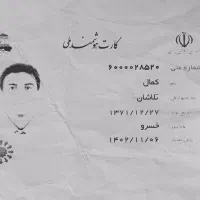 کارت هوشمند ملی
شماره ملی
۶۰۰۰۰۲۸۵۲۰
کمال
تلاشان
۱۳۷۱/۱۲/۲۷
خسرو
۱۴۰۲/۱۱/۰۶